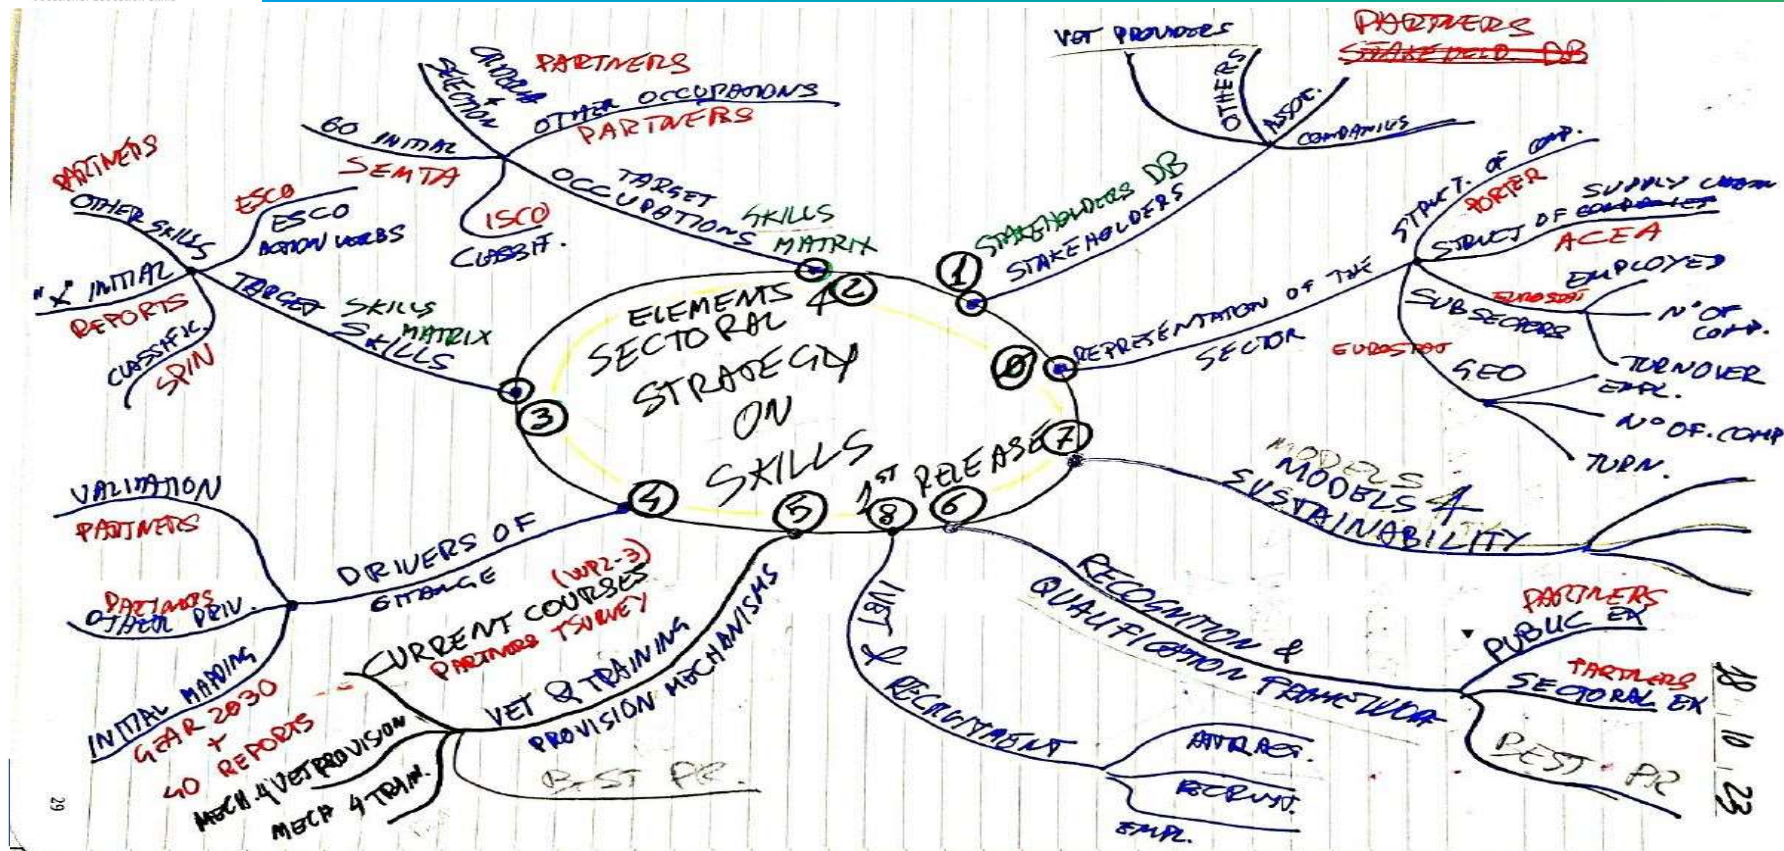 ELEMENTS 4
SECTORAL
STRATEGY
ON
SKILLS
1ST RELEASE
0
REPRESENTATION OF THE
SECTOR
STRUCT. OF COMP.
PORTER
STRUCT OF COMPANIES
SUPPLY CHAIN
ACEA
SUBSECTORS
EUROSTAT
EMPLOYED
Nº OF
COMP.
TURNOVER
EUROSTAT
GEO
EMPL.
Nº OF. COMP
TURN.
1
STAKEHOLDERS DB
STAKEHOLDERS
VET PROVIDERS
OTHERS
ASSOC.
COMPANIES
PARTNERS
STAKEHOLD. DB
2
SKILLS
MATRIX
TARGET
OCCUPATIONS
60 INITIAL
SEMTA
CRITERIA
+
SELECTION
PARTNERS
OTHER OCCUPATIONS
PARTNERS
ISCO
CLASSIF.
3
SKILLS
MATRIX
TARGET SKILLS
PARTNERS
OTHER SKILLS
ESCO
ESCO
ACTION VERBS
"X" INITIAL
REPORTS
CLASSIFIC.
SPIN
4
DRIVERS OF
CHANGE
VALIDATION
PARTNERS
PARTNERS
OTHER DRIV.
INITIAL MAPPING
GEAR 2030
+
40 REPORTS
5
VET & TRAINING
PROVISION MECHANISMS
(WP2-3)
CURRENT COURSES
PARTNERS TSURVEY
MECH. 4 VET PROVISION
MECH 4 TRAIN.
BEST PR.
6
RECOGNITION &
QUALIFICATION FRAMEWORK
PARTNERS
PUBLIC EX
PARTNERS
SECTORAL EX
BEST PR
7
MODELS
MODELS 4
SUSTAINABILITY
8
IVET & RECRUITMENT
ATTRACT.
RECRUIT.
EMPL.
18.10.23
29